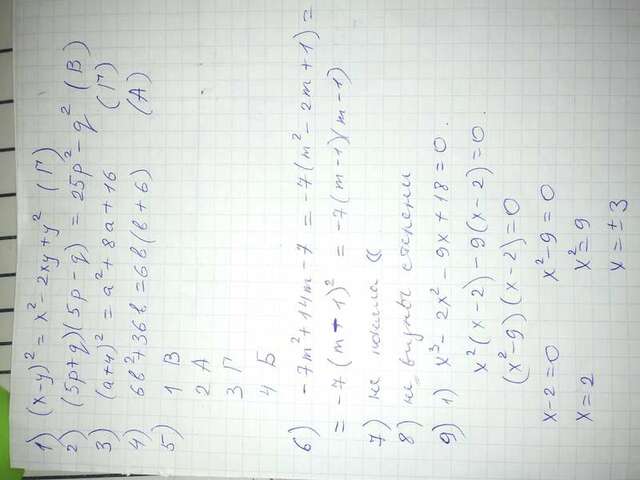 1) (x-y)² = x² - 2xy + y² (Г)
2) (5p+q)(5p-q) = 25p² - q² (В)
3) (a+4)² = a² + 8a + 16 (Г)
4) 6b² + 36b = 6b(b+6) (А)
5) 1 В
2 А
3 Г
4 Б
6) -7m² + 14m - 7 = -7(m² - 2m + 1) =
= -7(m-1)² = -7(m-1)(m-1)
7) не поняла ((
8) не видны степени
9) 1) x³ - 2x² - 9x + 18 = 0.
x²(x-2) - 9(x-2) = 0.
(x²-9)(x-2) = 0
x-2=0 x²-9=0
x=2 x²=9
x=±3